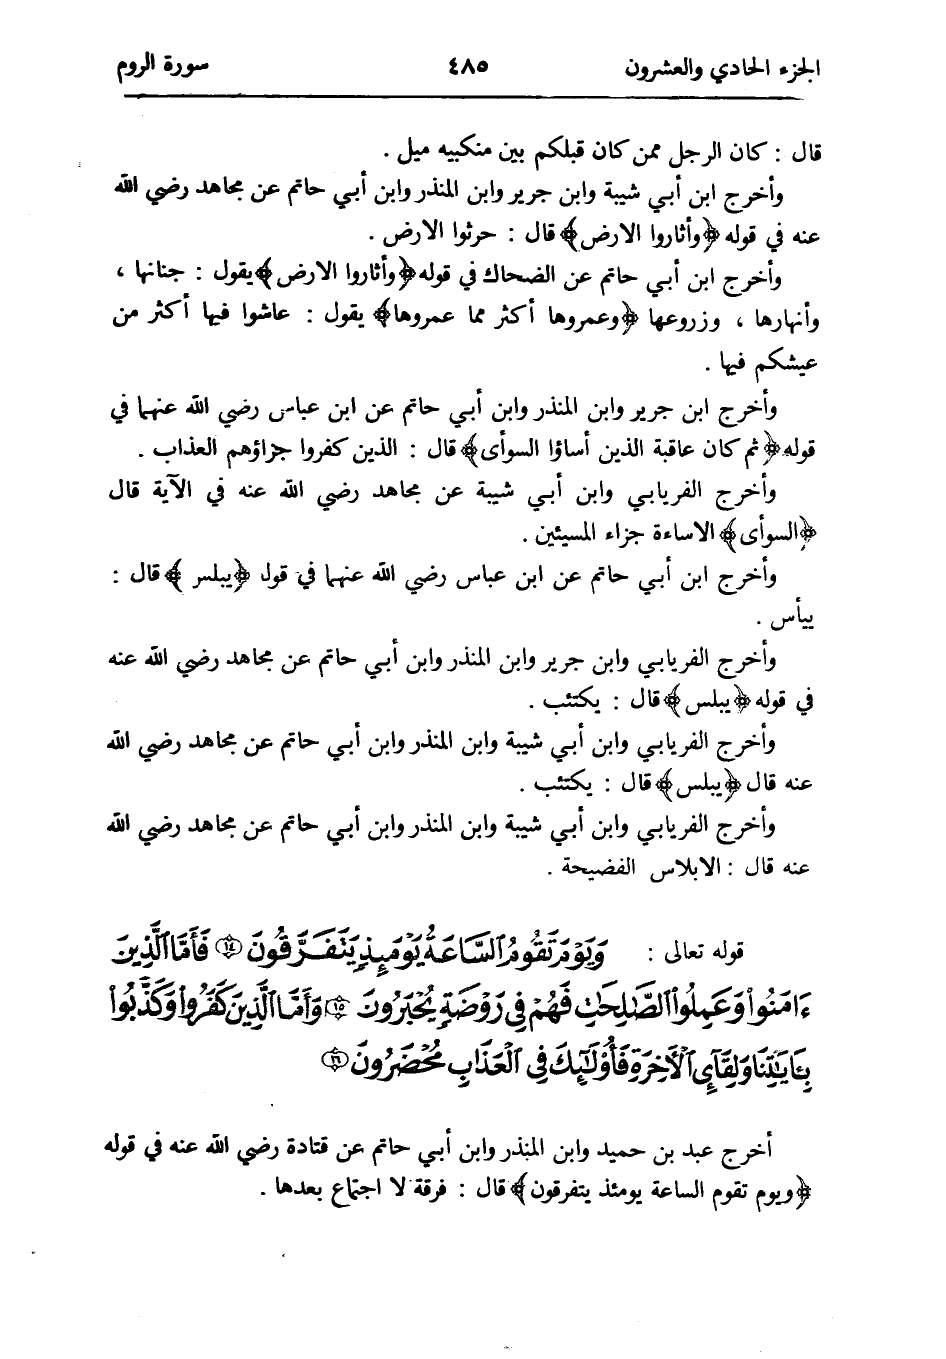 الجزء الحادي والعشرون ٤٨٥ سورة الروم
قال : كان الرجل ممن كان قبلكم بين منكبيه ميل .
وأخرج ابن أبي شيبة وابن جرير وابن المنذر وابن أبي حاتم عن مجاهد رضي الله
عنه في قوله ﴿وأثاروا الارض﴾ قال : حرثوا الارض .
وأخرج ابن أبي حاتم عن الضحاك في قوله ﴿وأثاروا الارض﴾ يقول : جنانها ،
وأنهارها ، وزروعها ﴿وعمروها أكثر مما عمروها﴾ يقول : عاشوا فيها أكثر من
عيشكم فيها .
وأخرج ابن جرير وابن المنذر وابن أبي حاتم عن ابن عباس رضي الله عنهما في
قوله ﴿ثم كان عاقبة الذين أساؤا السوأى﴾ قال : الذين كفروا جزاؤهم العذاب .
وأخرج الفريابي وابن أبي شيبة عن مجاهد رضي الله عنه في الآية قال
﴿السوأى﴾ الاساءة جزاء المسيئين .
وأخرج ابن أبي حاتم عن ابن عباس رضي الله عنهما في قول ﴿يبلس﴾ قال :
ييأس .
وأخرج الفريابي وابن جرير وابن المنذر وابن أبي حاتم عن مجاهد رضي الله عنه
في قوله ﴿يبلس﴾ قال : يكتئب .
وأخرج الفريابي وابن أبي شيبة وابن المنذر وابن أبي حاتم عن مجاهد رضي الله
عنه قال ﴿يبلس﴾ قال : يكتئب .
وأخرج الفريابي وابن أبي شيبة وابن المنذر وابن أبي حاتم عن مجاهد رضي الله
عنه قال : الابلاس الفضيحة .
قوله تعالى : وَيَوْمَ تَقُومُ ٱلسَّاعَةُ يَوْمَئِذٍ يَتَفَرَّقُونَ ١٤ فَأَمَّا ٱلَّذِينَ
ءَامَنُواْ وَعَمِلُواْ ٱلصَّٰلِحَٰتِ فَهُمْ فِي رَوْضَةٍ يُحْبَرُونَ ١٥ وَأَمَّا ٱلَّذِينَ كَفَرُواْ وَكَذَّبُواْ
بِـَٔايَٰتِنَا وَلِقَآيِٕ ٱلْأٓخِرَةِ فَأُوْلَٰٓئِكَ فِي ٱلْعَذَابِ مُحْضَرُونَ ١٦
أخرج عبد بن حميد وابن المنذر وابن أبي حاتم عن قتادة رضي الله عنه في قوله
﴿ويوم تقوم الساعة يومئذ يتفرقون﴾ قال : فرقة لا اجتماع بعدها .